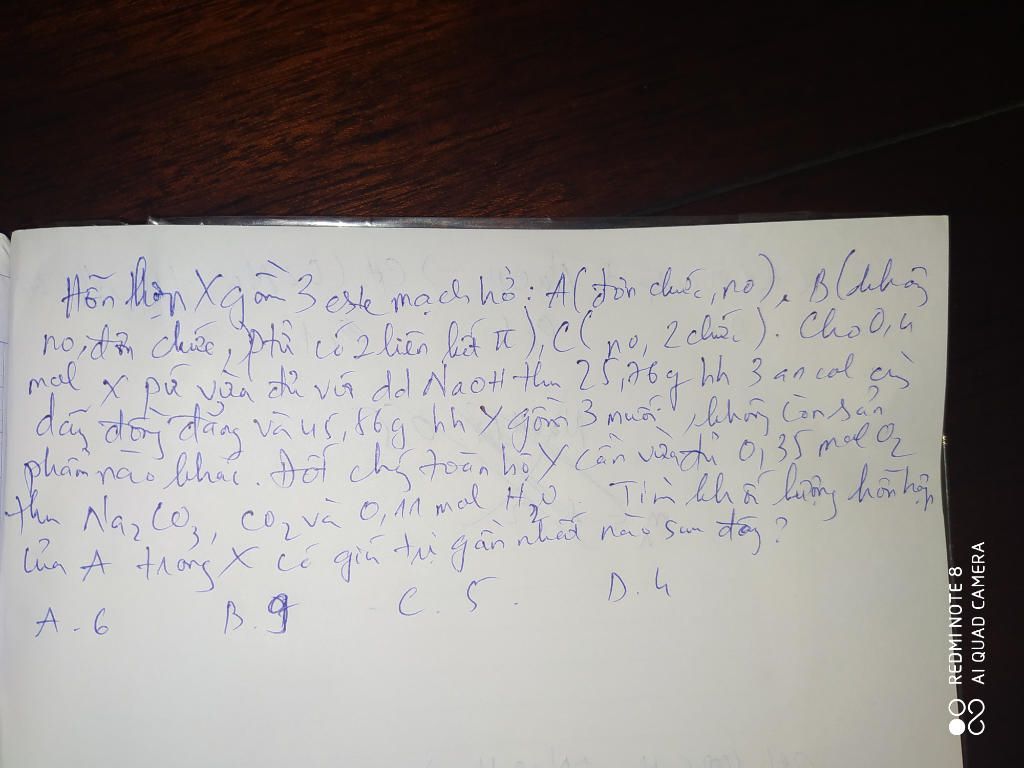 Hỗn hợp X gồm 3 este mạch hở: A (đơn chức, no), B (không
no, đơn chức, ptử có 2 liên kết π), C (no, 2 chức). Cho 0,4
mol X pứ vừa đủ với dd NaOH thu 25,76g hh 3 ancol cùng
dãy đồng đẳng và 45,86g hh Y gồm 3 muối, không còn sản
phẩm nào khác. Đốt cháy toàn bộ Y cần vừa đủ 0,35 mol O2
thu Na2CO3, CO2 và 0,11 mol H2O. Tìm khối lượng hỗn hợp
của A trong X có giá trị gần nhất nào sau đây?
A. 6 B. 9 C. 5. D. 4
REDMI NOTE 8
AI QUAD CAMERA